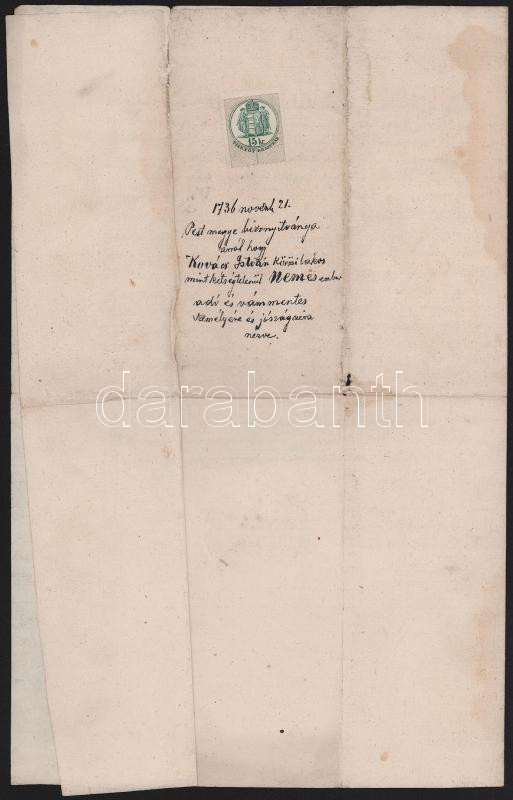 15 kr.
TIZENÖT KRAJCZÁR
1736 novemb 21.
Pest megye bizonyitványa
arról hogy
Kovács István kőrösi lakos
mint kétségtelenül Nemes ember
adó és vámmentes
személyére és jószágaira
nézve.
darabanth